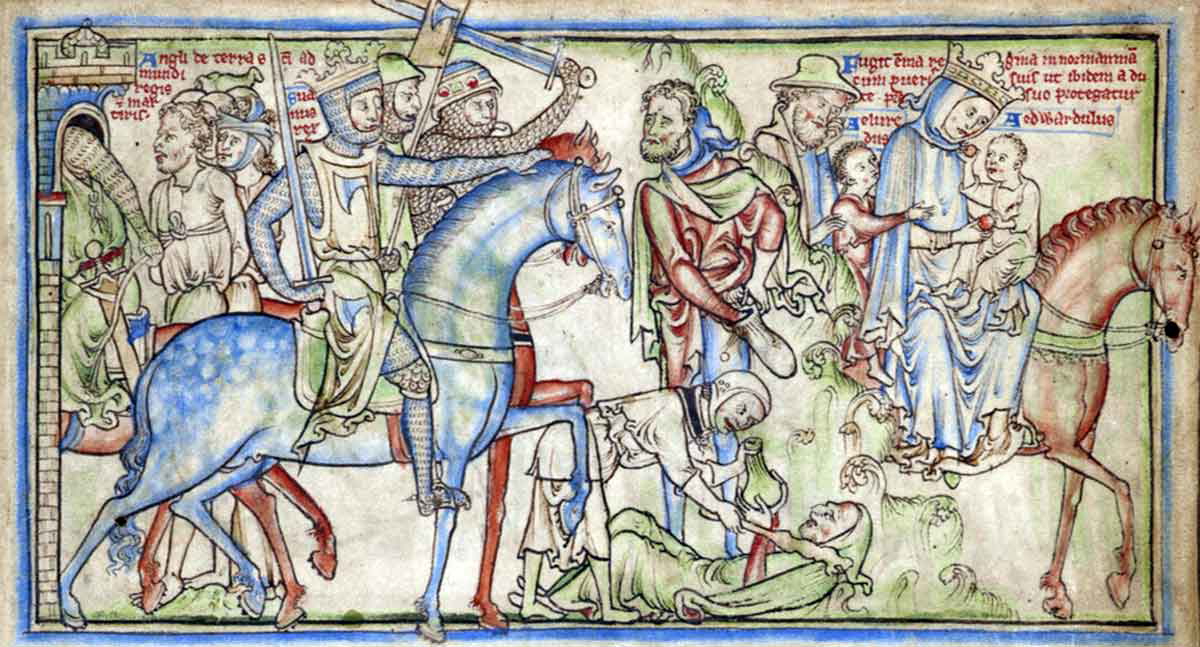 Angli de terra s ad
mundi
regis
mar
tiris
Sua
nus
rex
Fugit ẽma re gina in
cum pueris suis ut ibidem a du
suo protegatur
Aelure
dus
Aedwardulus